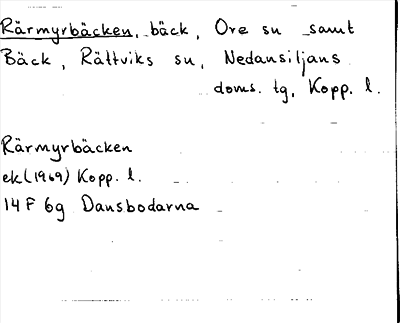 Rärmyrbäcken, bäck, Ore sn samt
Bäck, Rättviks sn, Nedansiljans
doms. tg, Kopp. l.
Rärmyrbäcken
ek (1969) Kopp. l.
14 F 6g Dansbodarna